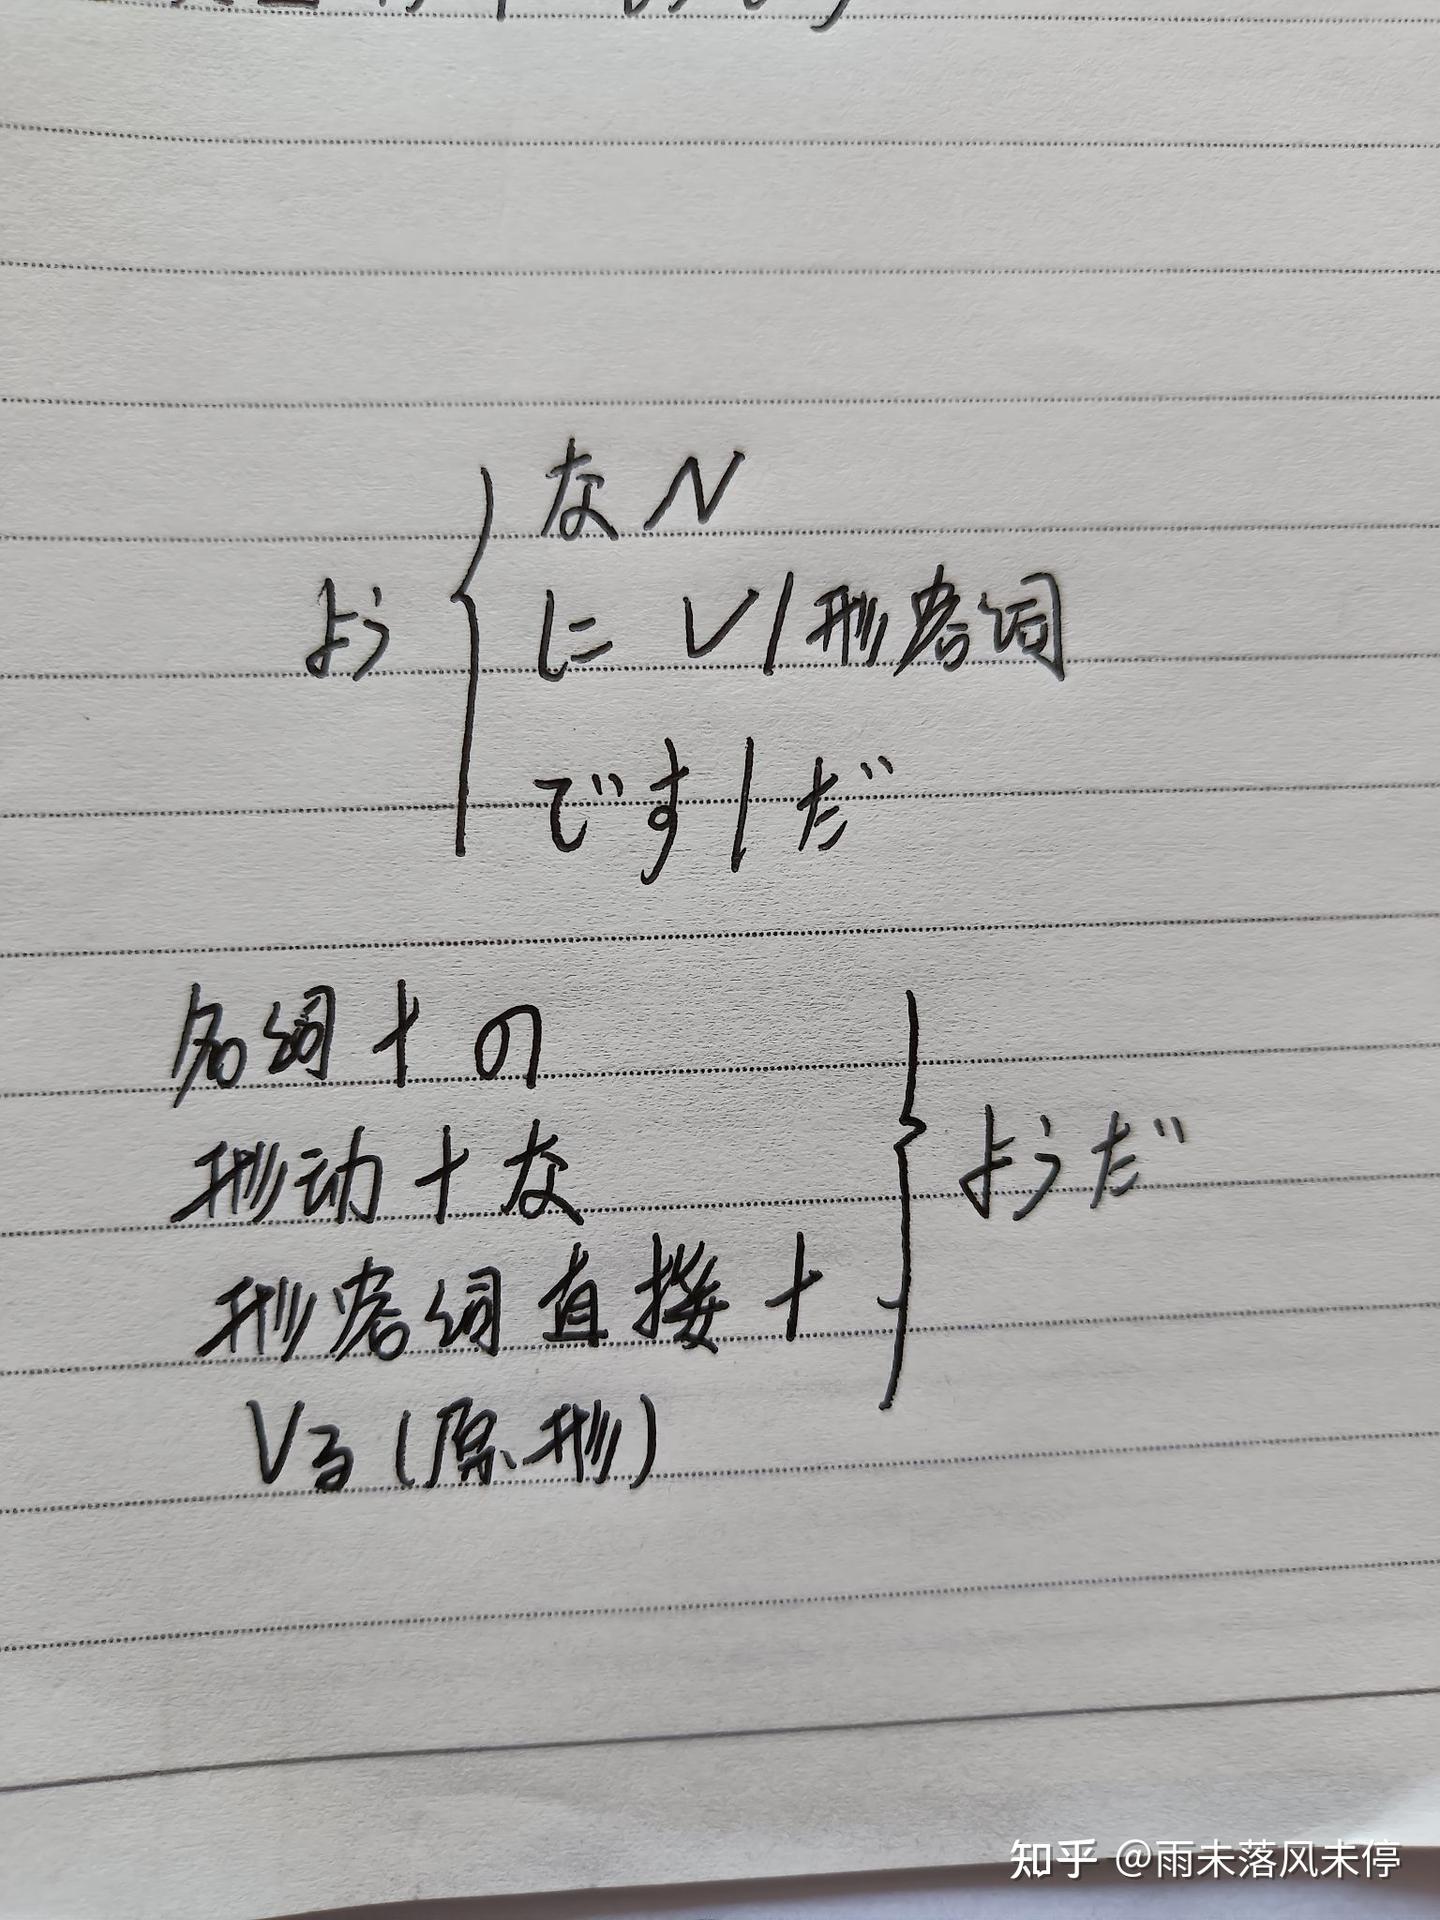 なN
よう{にV/形容词
です/だ
名词+の
形动+な
}ようだ
形容词直接+
Vる(原形)
知乎 @雨未落风未停